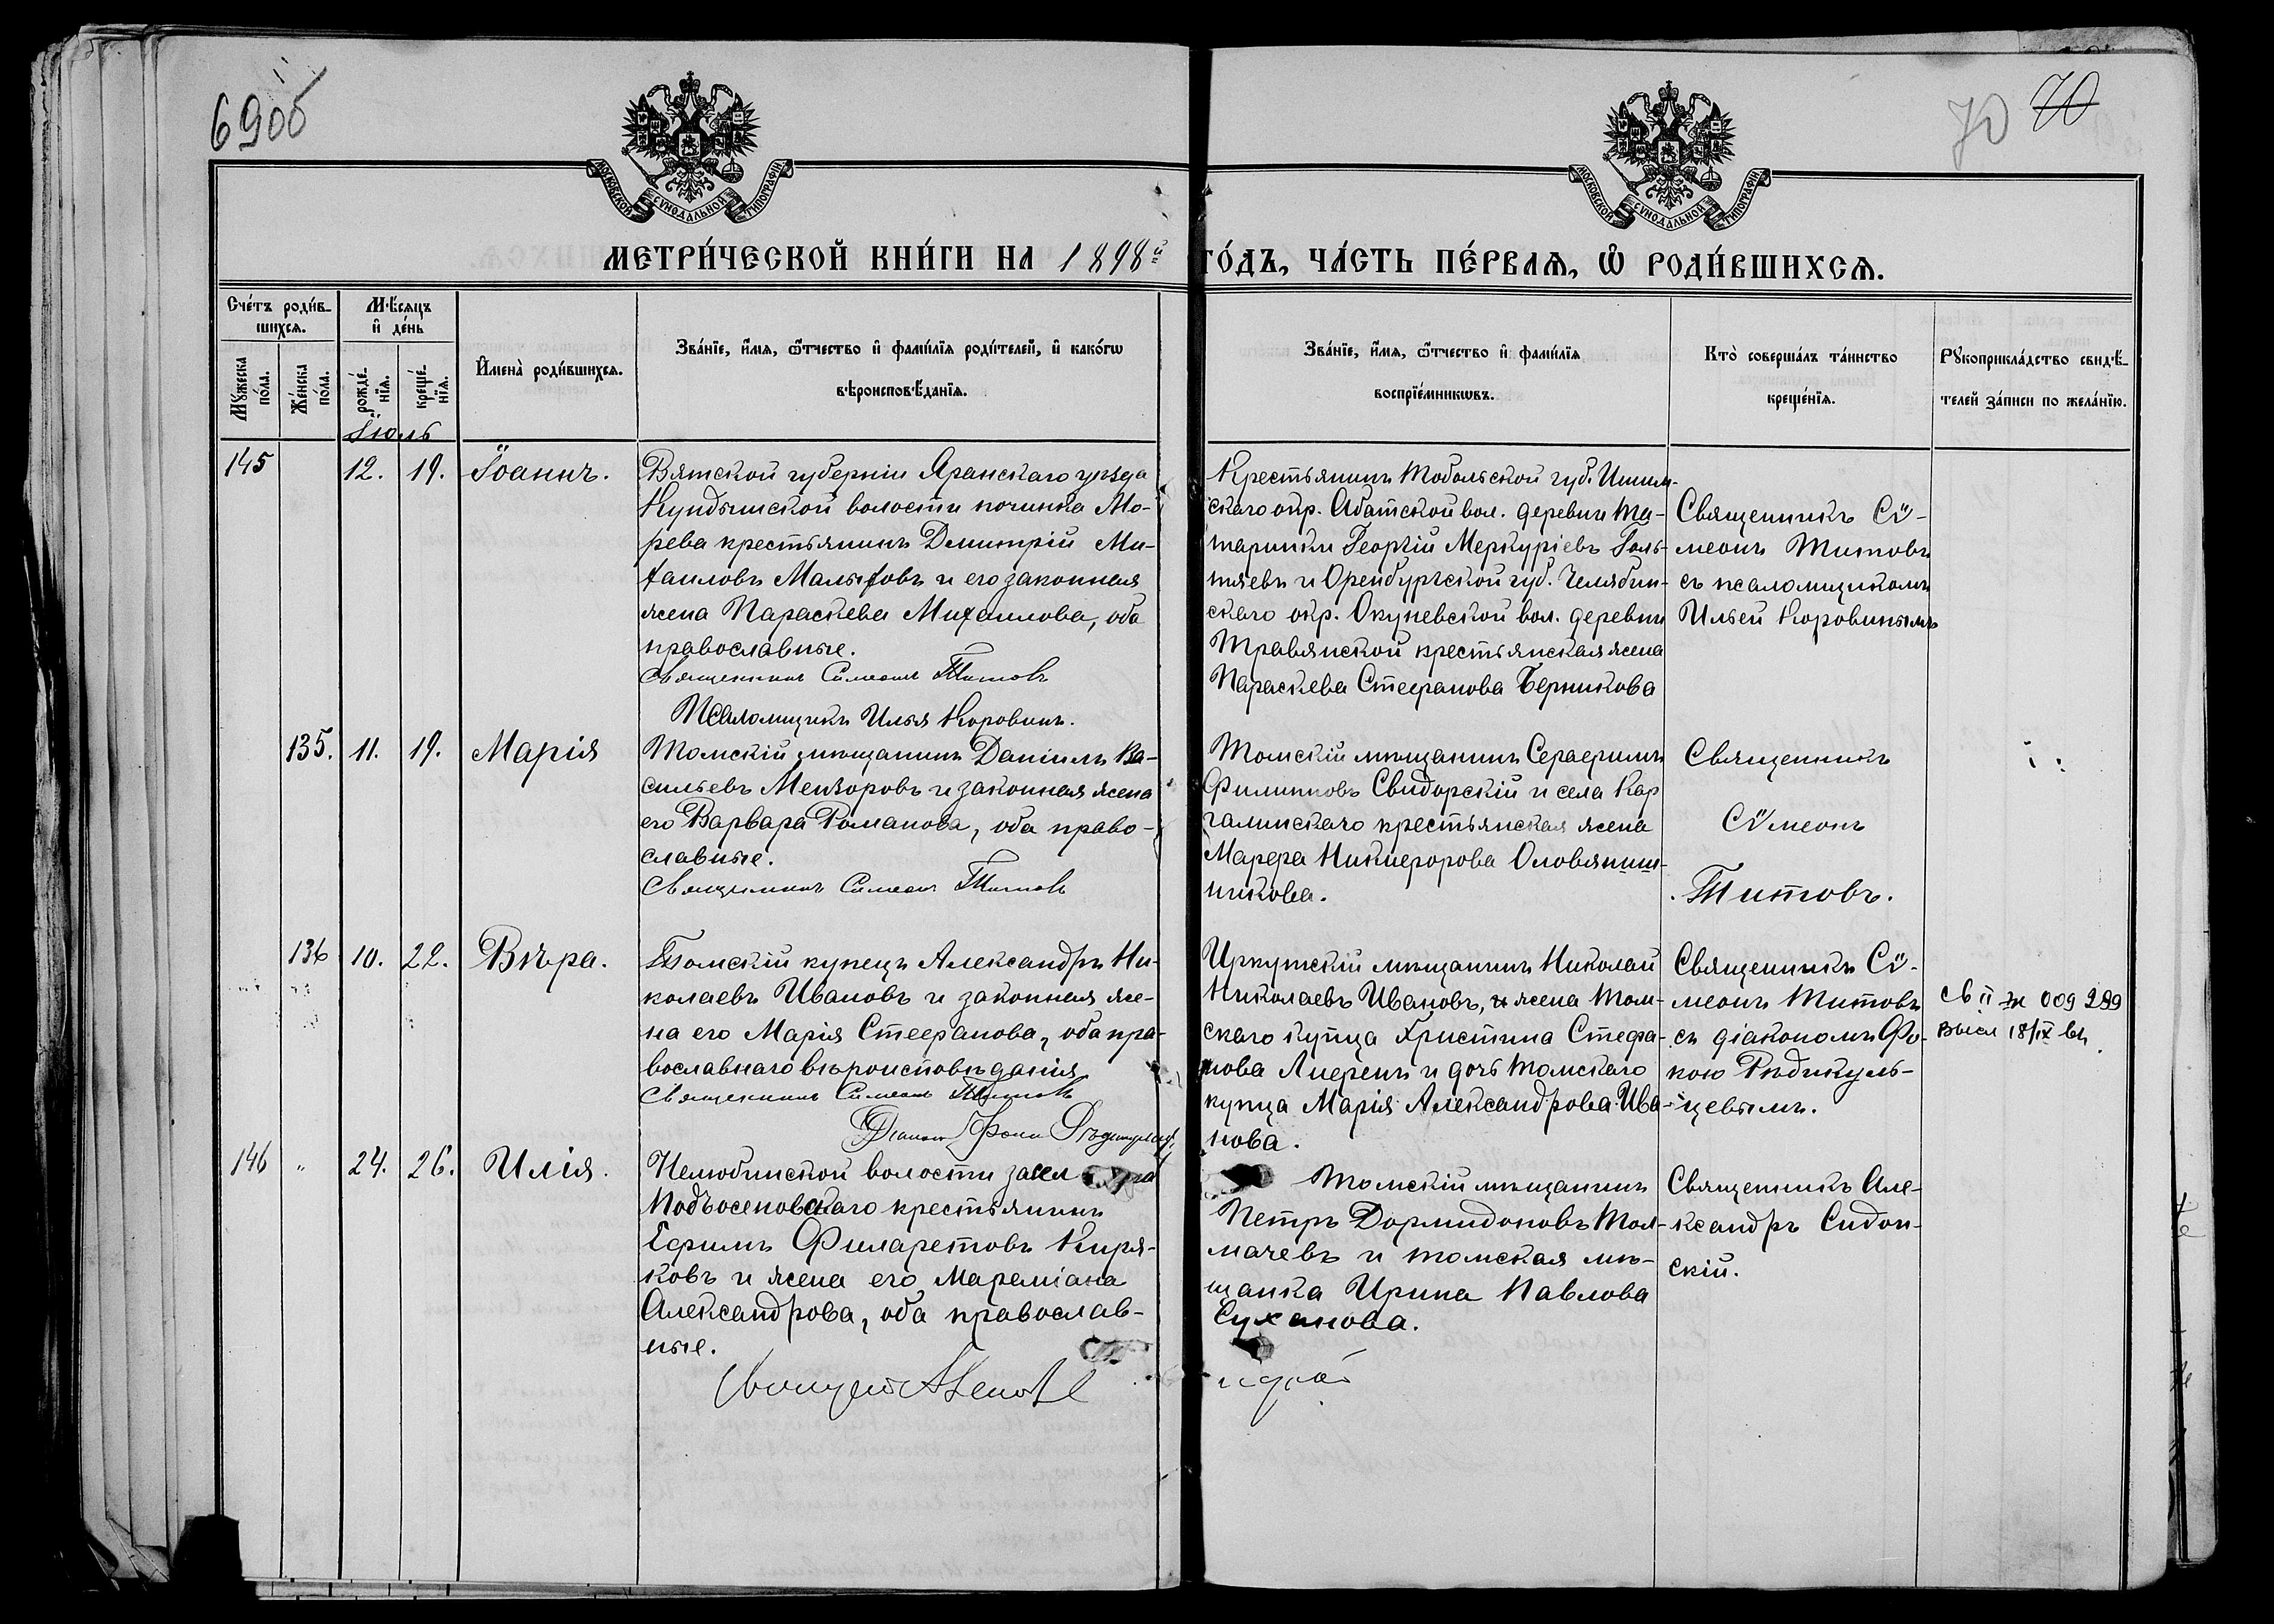 690об
70 70
МОСКОВСКОЙ СѴНОДАЛЬНОЙ ТИПОГРАФІИ
МОСКОВСКОЙ СѴНОДАЛЬНОЙ ТИПОГРАФІИ
МЕТРИ́ЧЕСКОЙ КНИ́ГИ НА 1898й ГО́ДЪ, ЧА́СТЬ ПЕ́РВАѦ, Ѽ РОДИ́ВШИХСѦ.
Сче́тъ роди́в-
шихсѧ.
Мꙋ́жеска по́ла.
Же́нска по́ла.
Мѣ́сѧцъ
и҆ де́нь
рожде́нїѧ.
креще́нїѧ.
Іюль
И҆мена̀ роди́вшихсѧ.
Зва́нїе, и҆́мѧ, ѿтчество и҆ фами́лїѧ роди́телей, и҆ како́гѡ
вѣроисповѣ́данїѧ.
Зва́нїе, и҆́мѧ, ѿтчество и҆ фами́лїѧ
воспрїе́мникѡвъ.
Кто̀ соверша́лъ та́инство
креще́нїѧ.
Рꙋкоприкла́дство свидѣ́-
телей за́писи по жела́нїю.
145
12. 19. Іоаннъ.
Вятской губерніи Яранскаго уѣзда
Кундышской волости починка Мо-
рева крестьянинъ Димитрій Ми-
хаиловъ Малыховъ и его законная
жена Параскева Михаилова, оба
православные.
Священникъ Симеонъ Титовъ
Псаломщикъ Илья Коровинъ.
Крестьянинъ Тобольской губ. Ишим-
скаго окр. Абатской вол. деревни Та-
таринки Георгій Меркуріевъ Голь-
тяевъ и Оренбургской губ. Челябин-
скаго окр. Окуневской вол. деревни
Травянской крестьянская жена
Параскева Стефанова Берникова
Священникъ Сѵ-
меонъ Титовъ
съ псаломщикомъ
Ильей Коровинымъ
135. 11. 19. Марія
Томскій мѣщанинъ Даніилъ Ва-
сильевъ Мензоровъ и законная жена
его Варвара Романова, оба право-
славные.
Священникъ Симеонъ Титовъ
Томскій мѣщанинъ Серафимъ
Филипповъ Свидорскій и села Кар
галинскаго крестьянская жена
Марфа Никифорова Оловяниш-
никова.
Священникъ
Сѵмеонъ
Титовъ.
136 10. 22. Вѣра.
Томскій купецъ Александръ Ни-
колаевъ Ивановъ и законная же-
на его Марія Стефанова, оба пра-
вославнаго вѣроисповѣданія
Священникъ Симеонъ Титовъ
Діаконъ Фока Рѣдикульцевъ
Иркутскій мѣщанинъ Николай
Николаевъ Ивановъ, и жена Том-
скаго купца Христина Стефа-
нова Лиеренъ и дочь томскаго
купца Марія Александрова Ива-
нова.
Священникъ Сѵ-
меонъ Титовъ
съ діакономъ Фо-
кою Рѣдикуль-
цевымъ.
св II эж 009 299
высл 18/IX
146 " 24. 26. Илія.
Нелюбинской волости засел
Подъосеновскаго крестьянинъ
Ефимъ Филаретовъ Киря-
ковъ и жена его Мареміана
Александрова, оба православ-
ные.
Томскій мѣщанинъ
Петръ Дормидоновъ Тол-
мачевъ и томская мѣ-
щанка Ирина Павлова
Суханова.
Священникъ Але-
ксандръ Сидон-
скій.